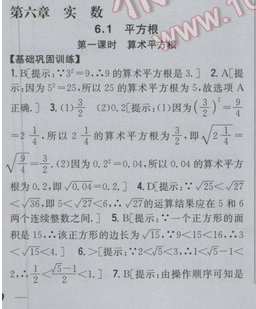 第六章 实 数
6.1 平方根
第一课时 算术平方根
【基础巩固训练】
1. B[提示:∵3²=9,∴9 的算术平方根是 3.] 2. A[提
示:因为 5²=25,所以 25 的算术平方根为 5,故选项 A
正确.] 3. (1) 3/2 (2)0.2[提示:(1)因为(3/2)²=9/4
=2 1/4,所以 2 1/4 的算术平方根为 3/2,即√(2 1/4)=
√(9/4)=3/2. (2)因为 0.2²=0.04,所以 0.04 的算术平方
根为 0.2,即√0.04=0.2.] 4. D[提示:∵√25<√27
<√36,即 5<√27<6,∴√27的运算结果应在 5 和 6
两个连续整数之间.] 5. B[提示:∵一个正方形的面
积是 15,∴该正方形的边长为√15,∵9<15<16,∴3
<√15<4.] 6. >[提示:∵2<√5<3,∴1<√5-1<
2,∴1/2<(√5-1)/2<1.] 7. B[提示:由操作顺序可知是